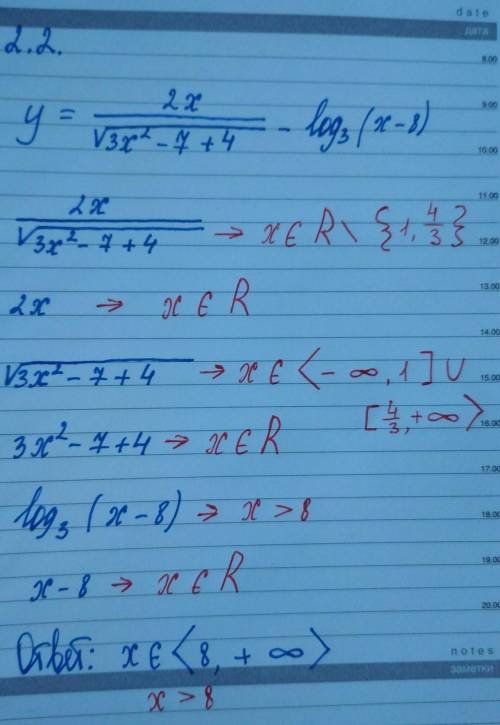 date
дата
2.2.
8.00
y = 2x / √3x² - 7 + 4 - log₃ (x - 8)
9.00
10.00
11.00
2x / √3x² - 7 + 4 → x ∈ R \ {1, 4/3}
12.00
2x → x ∈ R
13.00
14.00
√3x² - 7 + 4 → x ∈ ⟨-∞, 1] ∪
15.00
[4/3, +∞⟩
16.00
3x² - 7 + 4 → x ∈ R
17.00
log₃ (x - 8) → x > 8
18.00
19.00
x - 8 → x ∈ R
20.00
Ответ: x ∈ ⟨8, + ∞⟩
notes
заметки
x > 8